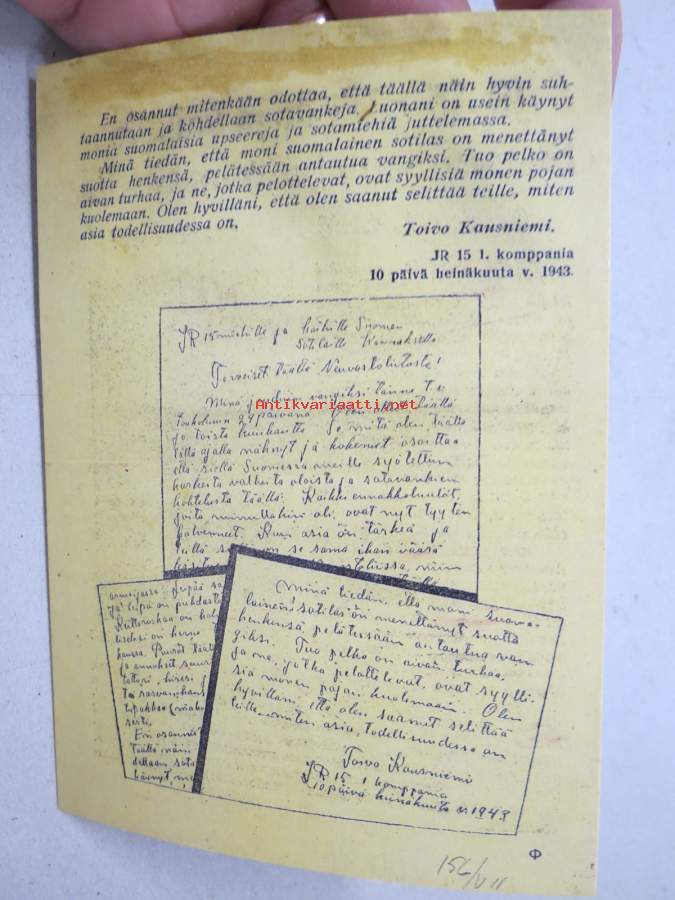 En osannut mitenkään odottaa, että täällä näin hyvin suh-
taannutaan ja kohdellaan sotavankeja. Luonani on usein käynyt
monia suomalaisia upseereja ja sotamiehiä juttelemassa.
Minä tiedän, että moni suomalainen sotilas on menettänyt
suotta henkensä, pelätessään antautua vangiksi. Tuo pelko on
aivan turhaa, ja ne, jotka pelottelevat, ovat syyllisiä monen pojan
kuolemaan. Olen hyvilläni, että olen saanut selittää teille, miten
asia todellisuudessa on.
Toivo Kausniemi.
JR 15 1. komppania
10 päivä heinäkuuta v. 1943.
JR 15 miehille ja kaikille Suomen
sotilaille
Terveiset täältä Neuvostoliitosta!
Minä jouduin vangiksi tänne t.v.
Toukokuun 24 päivänä
jo toista kuukautta Se mitä olen täällä
tällä ajalla nähnyt ja kokenut osoittaa
että siellä Suomessa meille syötettiin
karkeita valheita oloista ja sotavankien
kohtelusta täällä. Kaikki ennakkoluulot,
joita minullakin oli, ovat nyt tyyten
hälvenneet. Kun asia on tärkeä ja
teillä se sama ihan väärä
Antikvariaatti.net
armeijassa
ja leipä on puhdasta
Keittoruokaa on
kanssa. Puurot
ja annokset suur
Sesti,
En osannut
täällä näin
dellaan sota
käynyt, mo
Minä tiedän, että moni suoma-
lainen sotilas on menettänyt suotta
henkensä, pelätessään antautua van-
giksi. Tuo pelko on aivan turhaa,
ja ne, jotka pelottelevat, ovat syylli-
siä monen pojan kuolemaan. Olen
hyvilläni, että olen saanut selittää
teille miten asia, todellisuudessa on
Toivo Kausniemi
JR 15 1 komppania
10 päivä heinäkuuta v. 1943
Ф
156/VII